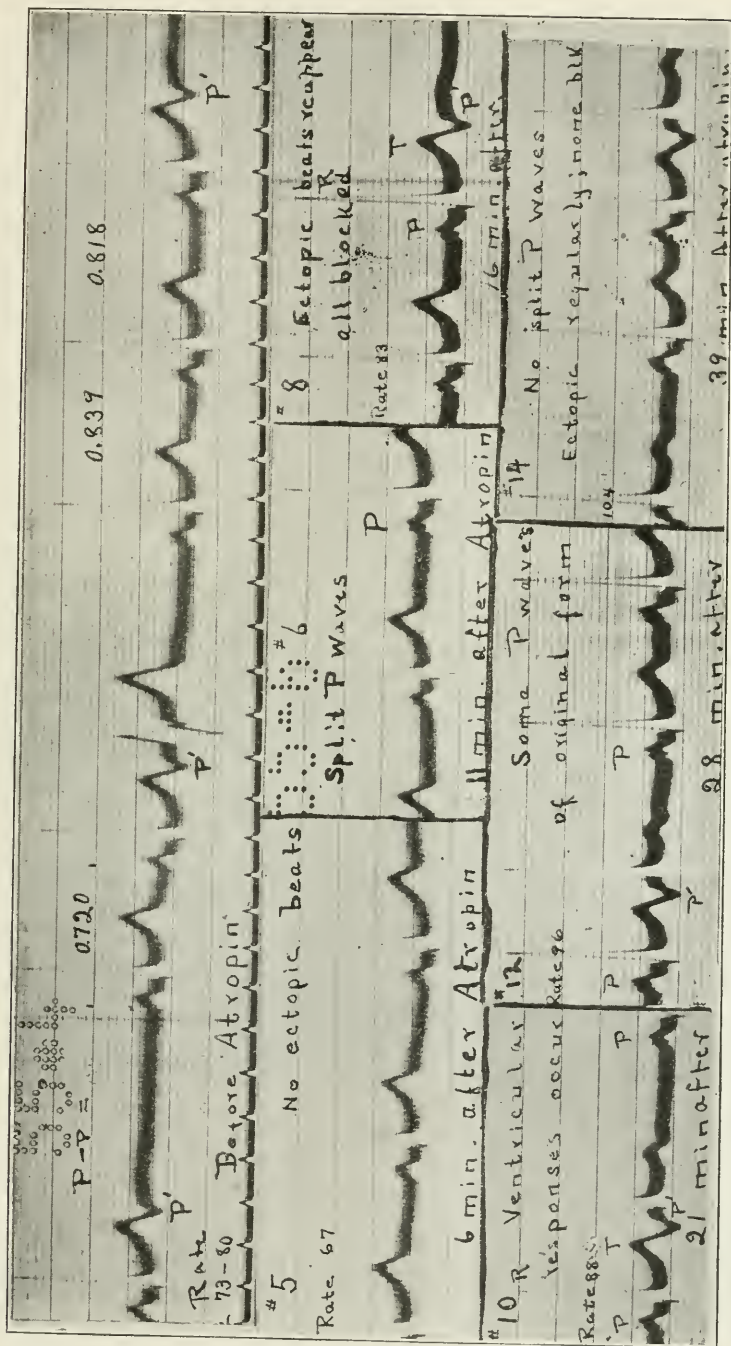 P-P = 0.720 0.839 0.818
P' P' P'
Rate
73-80
Before Atropin
#5 No ectopic beats
Rate 67
6 min. after Atropin
#6
Split P waves
P
11 min. after Atropin
#8 Ectopic beats reappear
all blocked
Rate 83
P R T P'
16 min. after.
#10 R Ventricular
responses occur
Rate 88
P T P' P
21 min after
#12 Some P waves
of original form
Rate 96
P P' P
28 min. after
#14 No split P waves
Ectopic regularly; none blk
104
39 min. After atropin.